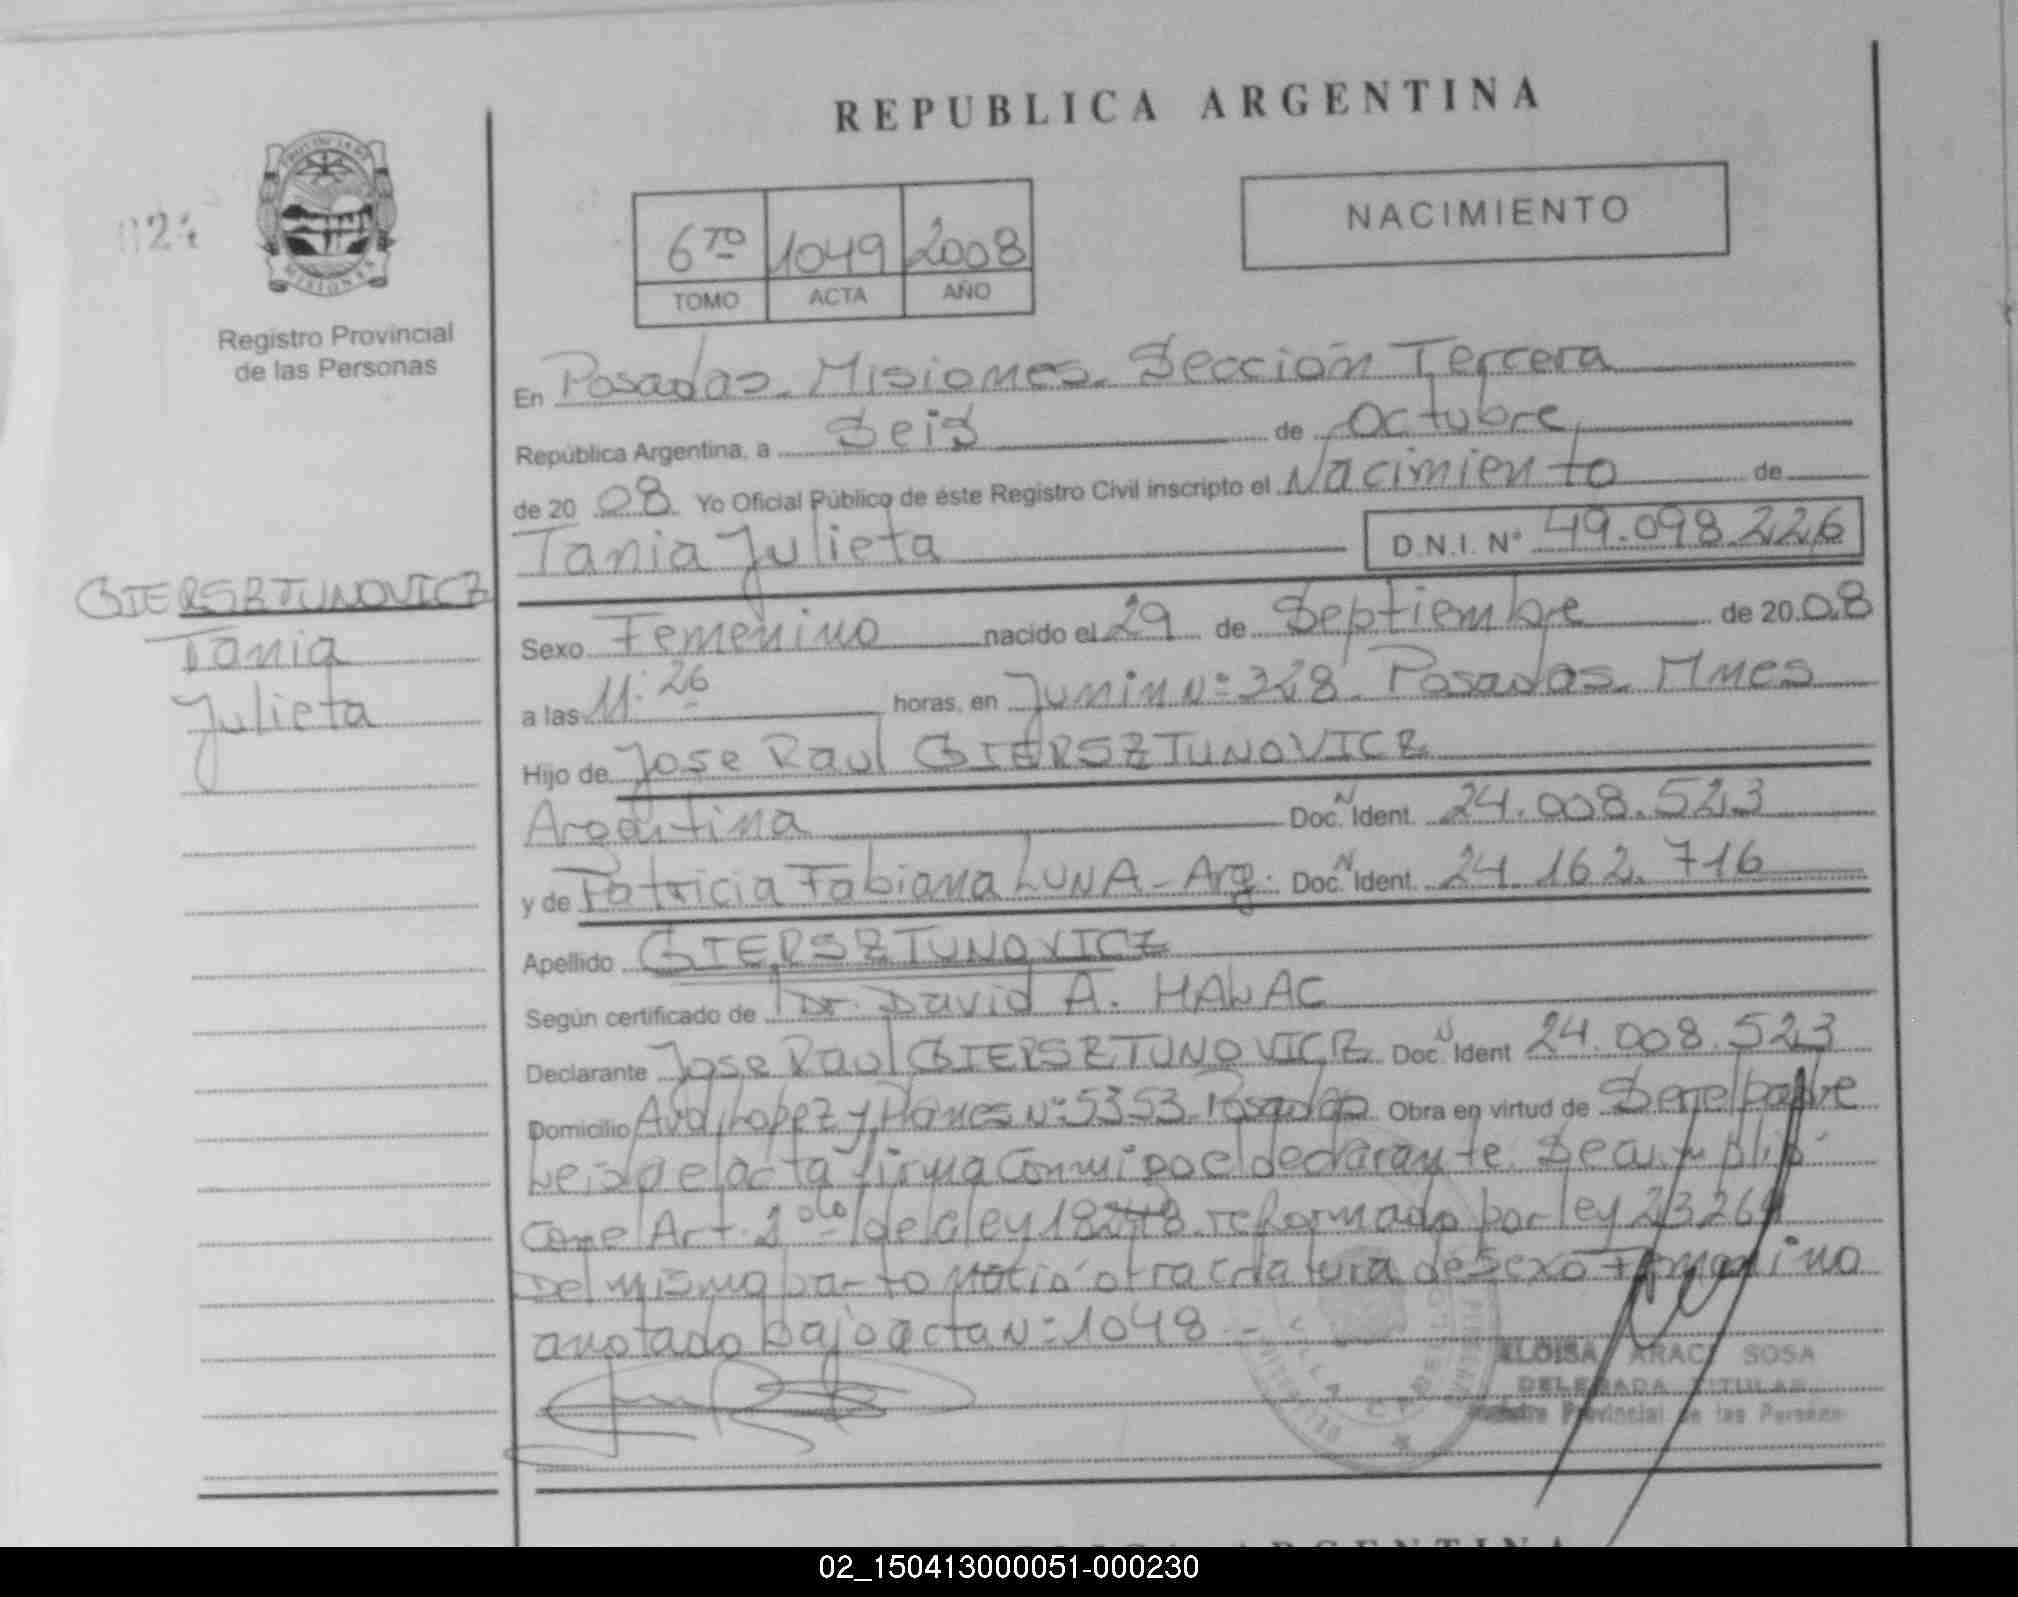 REPUBLICA ARGENTINA
NACIMIENTO
024
PROVINCIA DE
MISIONES
Registro Provincial
de las Personas
6TO 1049 2008
TOMO ACTA AÑO
En Posadas. Misiones. Sección Tercera
República Argentina, a Seis de Octubre
de 20 08 Yo Oficial Público de éste Registro Civil inscripto el Nacimiento de
Tania Julieta D.N.I. Nº 49.098.226
GIERSZTUNOVICZ
Tania
Julieta
Sexo Femenino nacido el 29 de Septiembre de 20 08
a las 11:26 horas, en Junin Nº 328. Posadas. Mnes
Hijo de Jose Raul GIERSZTUNOVICZ
Argentina Doc. N Ident. 24.008.523
y de Patricia Fabiana LUNA - Arg. Doc. N Ident. 24.162.716
Apellido GIERSZTUNOVICZ
Según certificado de Dr. David A. HALAC
Declarante Jose Raul GIERSZTUNOVICZ Doc. N Ident 24.008.523
Domicilio Avda. Lopez y Planes Nº 5353. Posadas Obra en virtud de Ser el padre
Leída el acta firma Conmigo el declarante. Se cumplió
con el Art. 1º de la ley 18248 reformado por ley 23264
Del mismo parto nació otra criatura de Sexo Femenino
anotado bajo acta Nº 1048 -
ELOISA ARACI SOSA
DELEGADA TITULAR
Registro Provincial de las Personas
REPUBLICA ARGENTINA
02_150413000051-000230